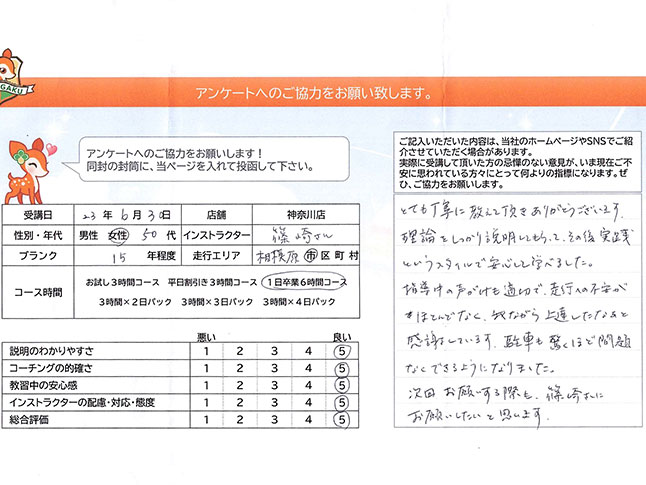 GAKU
アンケートへのご協力をお願い致します。
アンケートへのご協力をお願いします!
同封の封筒に、当ページを入れて投函して下さい。
受講日 23年 6月 30日 店舗 神奈川店
性別・年代 男性 女性 50代 インストラクター 篠崎さん
ブランク 15 年程度 走行エリア 相模原 市区町村
コース時間 お試し3時間コース 平日割引き3時間コース 1日卒業6時間コース
3時間×2日パック 3時間×3日パック 3時間×4日パック
悪い 良い
説明のわかりやすさ 1 2 3 4 5
コーチングの的確さ 1 2 3 4 5
教習中の安心感 1 2 3 4 5
インストラクターの配慮・対応・態度 1 2 3 4 5
総合評価 1 2 3 4 5
ご記入いただいた内容は、当社のホームページやSNSでご紹
介させていただく場合があります。
実際に受講して頂いた方の忌憚のない意見が、いま現在ご不
安に思われている方々にとって何よりの指標になります。ぜ
ひ、ご協力をお願いします。
とても丁寧に教えて頂きありがとうございます。
理論をしっかり説明してもらって、その後実践
というスタイルで安心して学べました。
指導中の声がけも適切で、走行への不安が
ほとんどなく、我ながら上達したなぁと
感謝しています。駐車も驚くほど問題
なくできるようになりました。
次回お願いする際も、篠崎さんに
お願いしたいと思います。